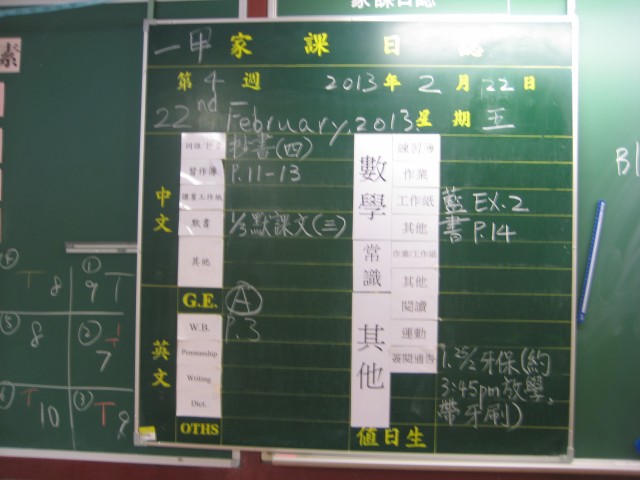 家課日誌
素
一甲 家課日誌
第 4 週 2013 年 2 月 22 日
22nd February, 2013 星期 五
中文
抄書(四)
習作簿 P.11-13
默書 1/3默課文(三)
其他
G.E. Ⓐ
英文
W.B. P.3
Penmanship
Writing
Dict.
OTHS
數學
練習簿
作業
工作紙 藍 EX.2
其他 書 P.14
常識
作業/工作紙
其他
其他
閱讀
運動
簽閱通告 1. 25/2牙保(約
3:45pm放學,
帶牙刷)
值日生
Bl
⑥ T 8
① 9 T
⑤ 8
② T 7
④ T 10
③ T 9